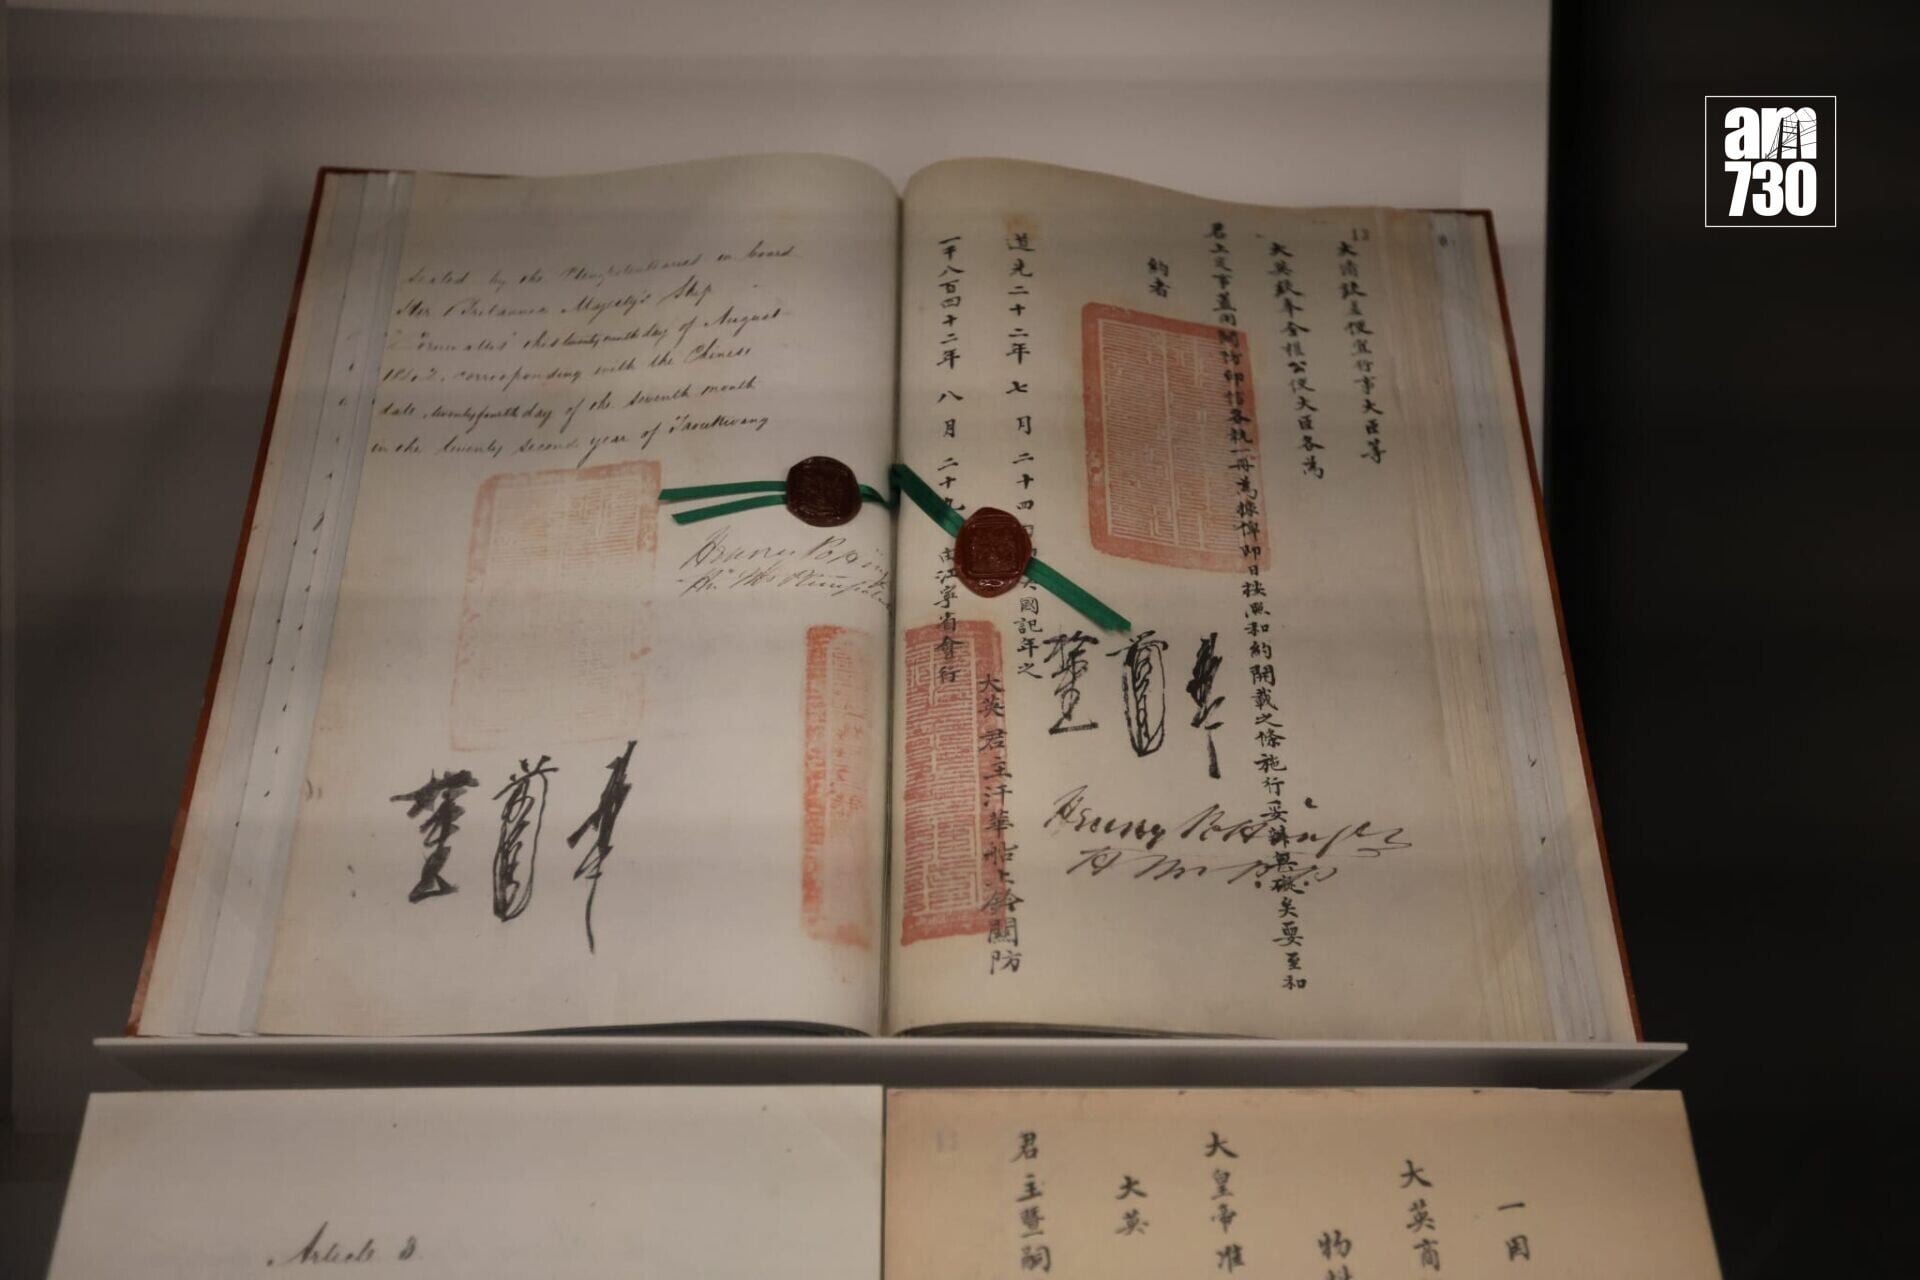 am
730
Sealed by the Plenipotentiaries on board
Her Britannic Majesty's Ship
"Cornwallis" this twenty ninth day of August
1842, corresponding with the Chinese
date, twenty fourth day of the seventh month
in the twenty second year of Taoukwang
Henry Pottinger
13
大清欽差便宜行事大臣等
大英欽奉全權公使大臣各為
君上定事蓋用關防印信各執一冊為據俾即日按照和約開載之條施行妥辦無礙矣要至和
約者
道光二十二年七月二十四日即英國記年之
一千八百四十二年八月二十九日由江寧省會行
大英君主汗華船上鈐關防
Henry Pottinger
Article 3
一因
大英商
物
大皇帝准
大英
君主暨嗣